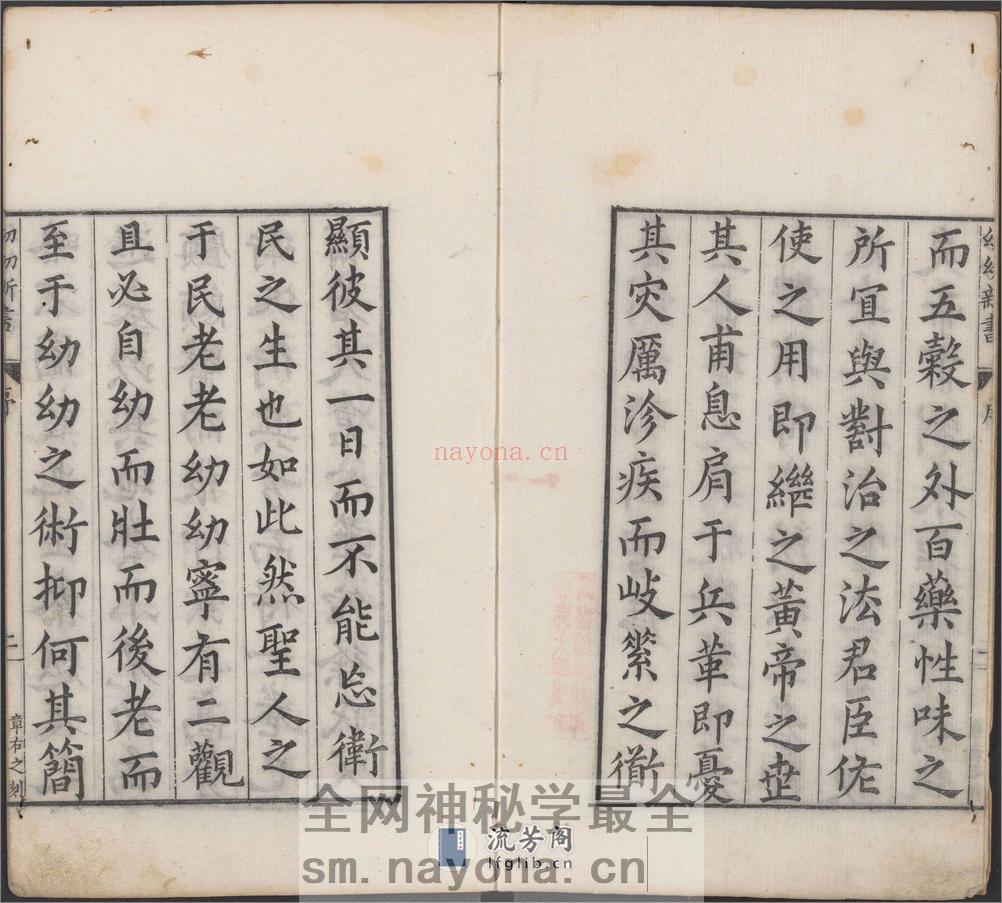 而五穀之外百藥性味之
所宜與對治之法君臣佐
使之用即繼之黃帝之世
其人甫息肩于兵革即憂
其灾厲沴疾而岐
之衜
顯彼其一日而不能忘衛
民之生也如此然聖人之
于民老老幼幼寧有二觀
且必自幼而壯而後老而
至于幼幼之術抑何其簡
幼幼新書
序
二
章右之刻
nayona.cn
全网神秘学最全
流芳阁
lfglib.cn
sm.nayona.cn